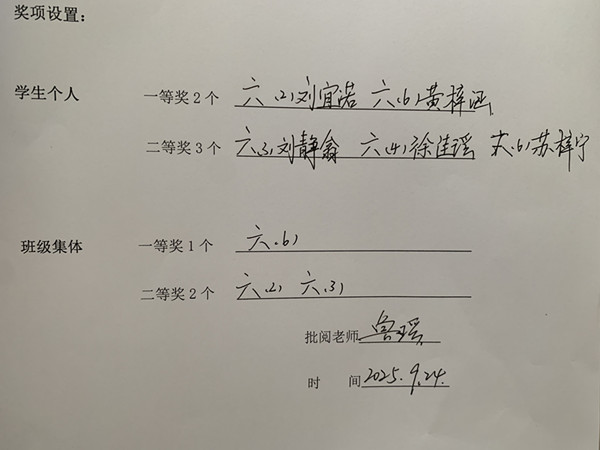 奖项设置：
学生个人 一等奖2个 六(2)刘宜诺 六(6)黄梓涵
二等奖3个 六(3)刘静翕 六(4)徐佳瑶 六(6)苏梓宁
班级集体 一等奖1个 六(6)
二等奖2个 六(2) 六(3)
批阅老师 瑶
时 间 2025.9.24.